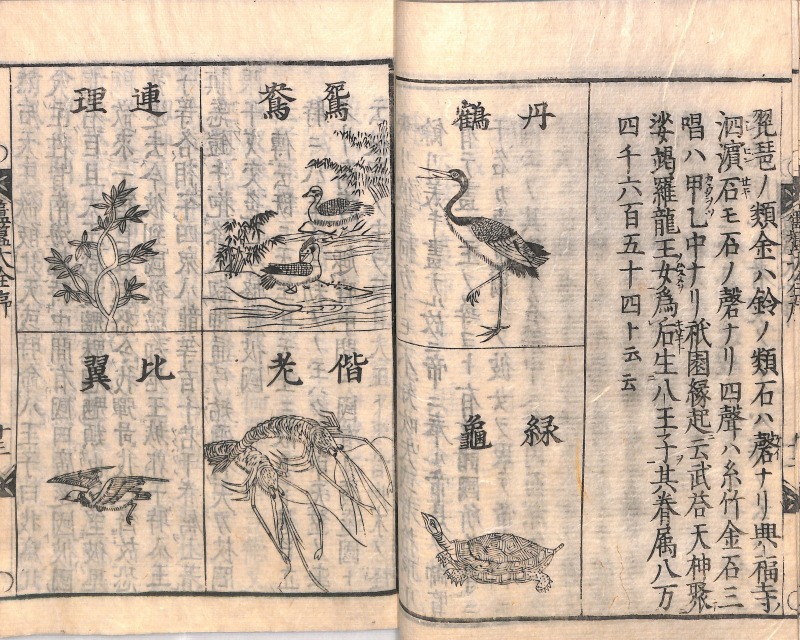 琵琶ノ類金ハ鈴ノ類石ハ磬ナリ興福寺ノ
泗濱石モ石ノ磬ナリ四聲ハ糸竹金石三
唱ハ甲乙中ナリ祇園縁起ニ云武荅天神聚
娑竭羅龍王女為后生八王子其眷属八万
四千六百五十四ト云云
丹鶴
緑龜
鴛鴦
偕老
連理
比翼